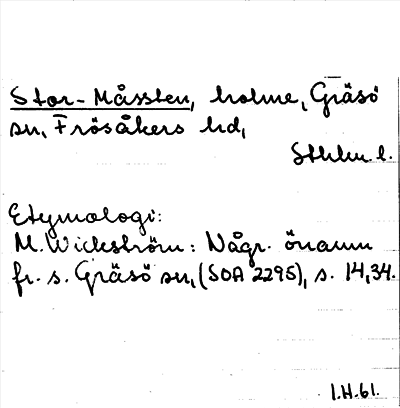 Stor-Måssten, holme, Gräsö
sn, Frösåkers hd,
Sthlm l.
Etymologi:
M. Wickström: Någr. önamn
fr. s. Gräsö sn, (SOA 2295), s. 14,34.
I.H.61.